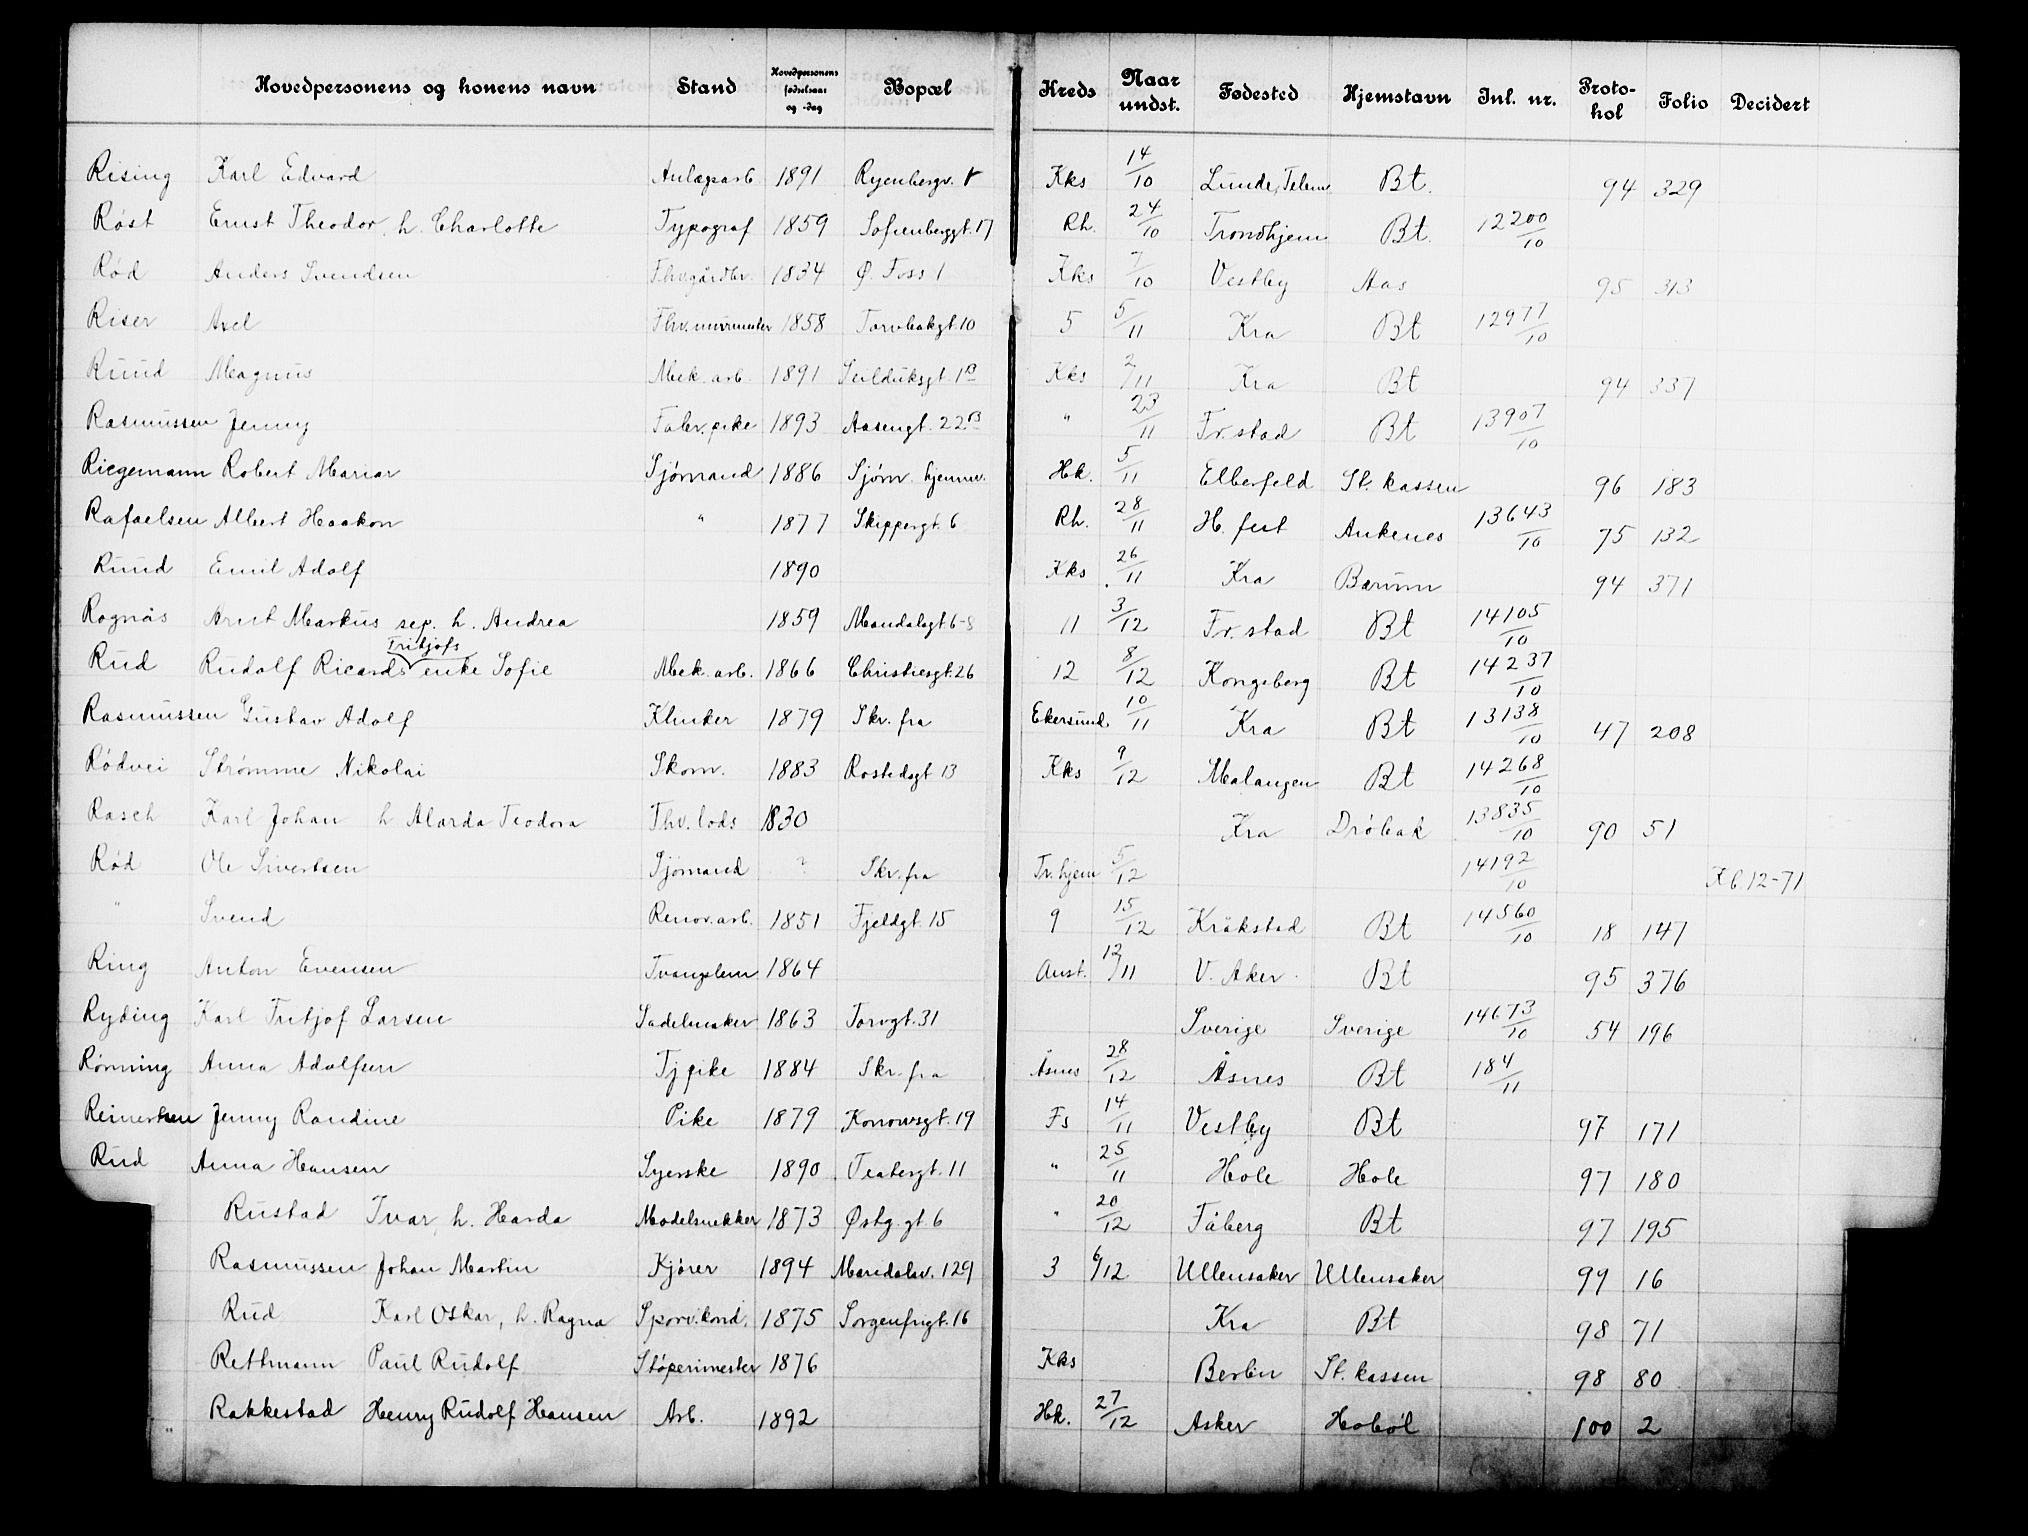 Hovedpersonens og konens navn Stand Hovedpersonens fødselsaar og -dag Bopæl Kreds Naar undst. Fødested Hjemstavn Inl. nr. Protokol Folio Decidert
Rising Karl Edvard Anlægsarb. 1891 Ryenbergv. Kks 14/10 Lunde, Telem. Bt. 94 329
Røst Ernst Theodor, h. Charlotte Typograf 1859 Sofienberggt. 17 Rh. 24/10 Trondhjem Bt. 12200/10
Rød Anders Svendsen Fhv. gårdbr. 1834 Ø. Foss 1 Kks 7/10 Vestby Aas 95 313
Riser Axel Fhv. murmester 1858 Torvbakgt. 10 5 5/11 Kra Bt 12977/10
Ruud Magnus Mek. arb. 1891 Seilduksgt. 1B Kks 2/11 Kra Bt 94 337
Rasmussen Jenny Fabr. pike 1893 Aasengt. 22B " 23/11 Fr.stad Bt 13907/10
Riegemann Robert Mariar Sjømand 1886 Sjøm. hjemm. Hk. 5/11 Elberfeld St. kassen 96 183
Rafaelsen Albert Haakon " 1877 Skippergt. 6 Rh. 28/11 H. fest Ankenes 13643/10 75 132
Ruud Emil Adolf 1890 Kks 26/11 Kra Bærum 94 371
Rognås Arnt Markus sep. h. Andrea 1859 Mandalsgt. 6-8 11 3/12 Fr. stad Bt 14105/10
Rud Rudolf Ricards Fritjofs enke Sofie Mek. arb. 1866 Christiesgt. 26 12 8/12 Kongsberg Bt 14237/10
Rasmussen Gustav Adolf Klinker 1879 Skr. fra Ekersund 10/11 Kra Bt 13138/10 47 208
Rødvei Strømme Nikolai Skom. 1883 Rostedsgt 13 Kks 9/12 Malangen Bt 14268/10
Rasch Karl Johan h Alarda Teodora Fhv. lods 1830 Kra Drøbak 13835/10 90 51
Rød Ole Sivertsen Sjømand ? Skr. fra Tr.hjem 5/12 14192/10 K 6. 12-71
" Svend Renov. arb. 1851 Fjeldgt. 15 9 15/12 Kråkstad Bt 14560/10 18 147
Ring Anton Evensen Tvangslem 1864 Anst. 12/11 V. Aker Bt 95 376
Ryding Karl Fritjof Larsen Sadelmaker 1863 Torvgt. 31 Sverige Sverige 14673/10 54 196
Rønning Anna Adolfsen Tj pike 1884 Skr. fra Åsnes 28/12 Åsnes Bt 184/11
Reinertsen Jenny Randine Pike 1879 Konowsgt. 19 Fs 14/11 Vestby Bt 97 171
Rud Anna Hansen Syerske 1890 Teatergt. 11 " 25/11 Hole Hole 97 180
Rustad Ivar, h. Harda Modelsnekker 1873 Østg. gt. 6 " 20/12 Fåberg Bt 97 195
Rasmussen Johan Martin Kjører 1894 Maridalsv. 129 3 6/12 Ullensaker Ullensaker 99 16
Rud Karl Oskar, h. Ragna Sporv. kond. 1875 Sorgenfrigt. 16 Kra Bt 98 71
Rethmann Paul Rudolf Støperimester 1876 Kks Berlin St. kassen 98 80
Rakkestad Henry Rudolf Hansen Arb. 1892 Hk. 27/12 Asker Hobøl 100 2